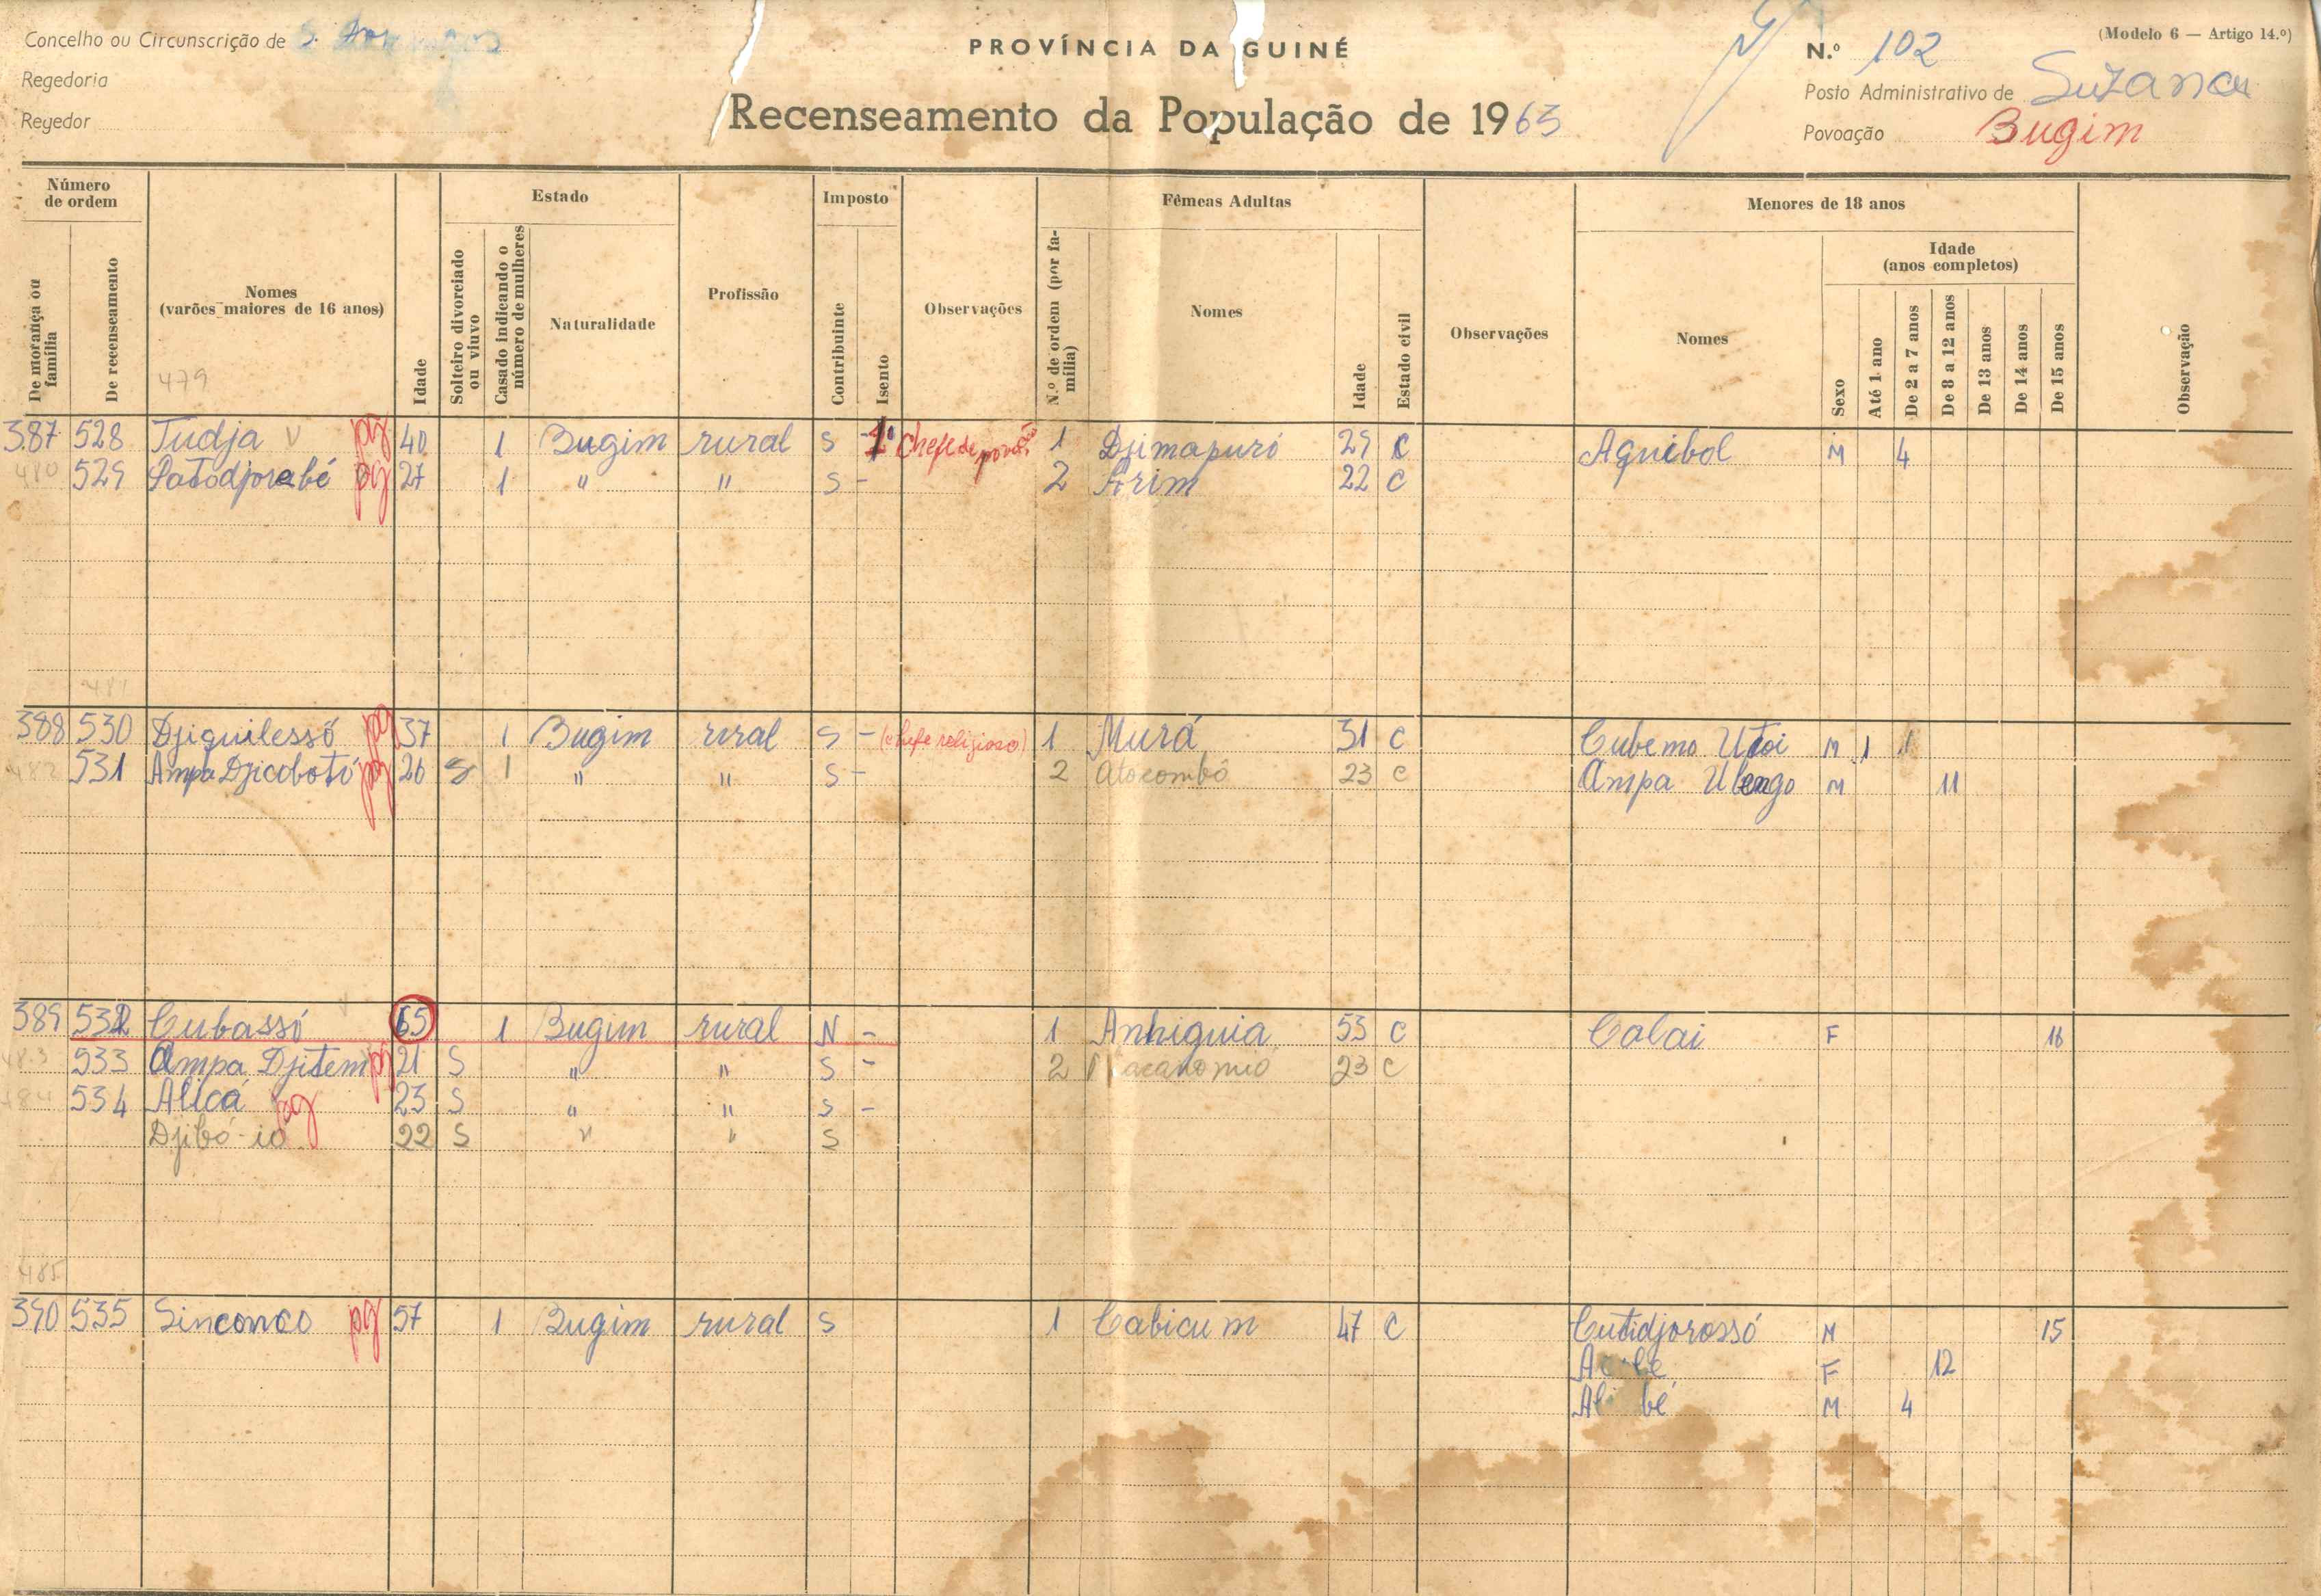 Concelho ou Circunscrição de S. Domingos
PROVÍNCIA DA GUINÉ
N.º 102
(Modelo 6 — Artigo 14.º)
Regedoria
Posto Administrativo de Suzana
Regedor
Recenseamento da População de 1963
Povoação Bugim
Número de ordem
De morança ou família
De recenseamento
Nomes
(varões maiores de 16 anos)
479
Idade
Estado
Solteiro divorciado ou viuvo
Casado indicando o número de mulheres
Naturalidade
Profissão
Imposto
Contribuinte
Isento
Observações
Fêmeas Adultas
N.º de ordem (por família)
Nomes
Idade
Estado civil
Observações
Menores de 18 anos
Nomes
Sexo
Idade
(anos completos)
Até 1 ano
De 2 a 7 anos
De 8 a 12 anos
De 13 anos
De 14 anos
De 15 anos
Observação
387 528 Tudja V pg 40 1 Bugim rural S - Chefe de 1 Djimapuró 29 C Aguibol M 4
480 529 Satodjorabé pg 27 1 " " S - 2 Arim 22 C
481
388 530 Djiguilessó pg 37 1 Bugim rural S - (chefe religioso) 1 Murá 31 C Cubemo M 1
482 531 Ampa Djicobotó pg 26 1 " " S - 2 Atocombô 23 C Ampa M 11
389 532 Cubassó 65 1 Bugim rural N - 1 Anhiguia 53 C Calai F 16
483 533 Ampa Djitem pg 21 S " " S - 2 23 C
484 534 Alicá pg 23 S " " S -
Djibó-ió 22 S " " S
485
390 535 Sinconco pg 57 1 Bugim rural S 1 Cabicum 47 C Cutidjorossó M 15
F 12
M 4